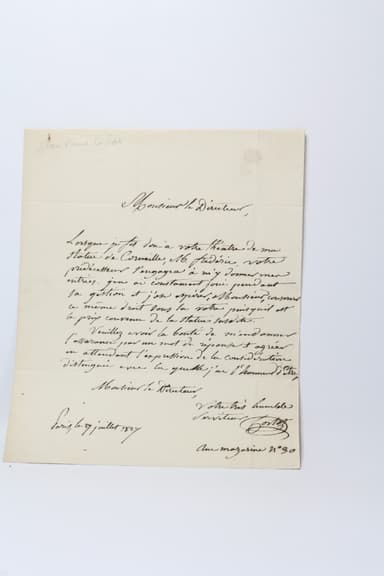 Monsieur le Directeur,
Lorsque je fis don a votre théatre de ma
statue de Corneille, M. frédéric votre
prédécesseur s'engagea à m'y donner mes
entrées, que ai constament joui pendant
sa gestion et j'ose espérer, Monsieur, conserver
ce même droit sous la votre puisqu'il est
le prix convenu de la statue susdite.
Veuillez avoir la bonté de m'en donner
l'assurance par un mot de réponse et agréer
en attendant l'expression de la considération
distinguée avec laquelle j'ai l'honneur d'être
Monsieur le Directeur,
Votre très humble
Serviteur
Paris, le 27 juillet 1827
rue mazarine N° 30